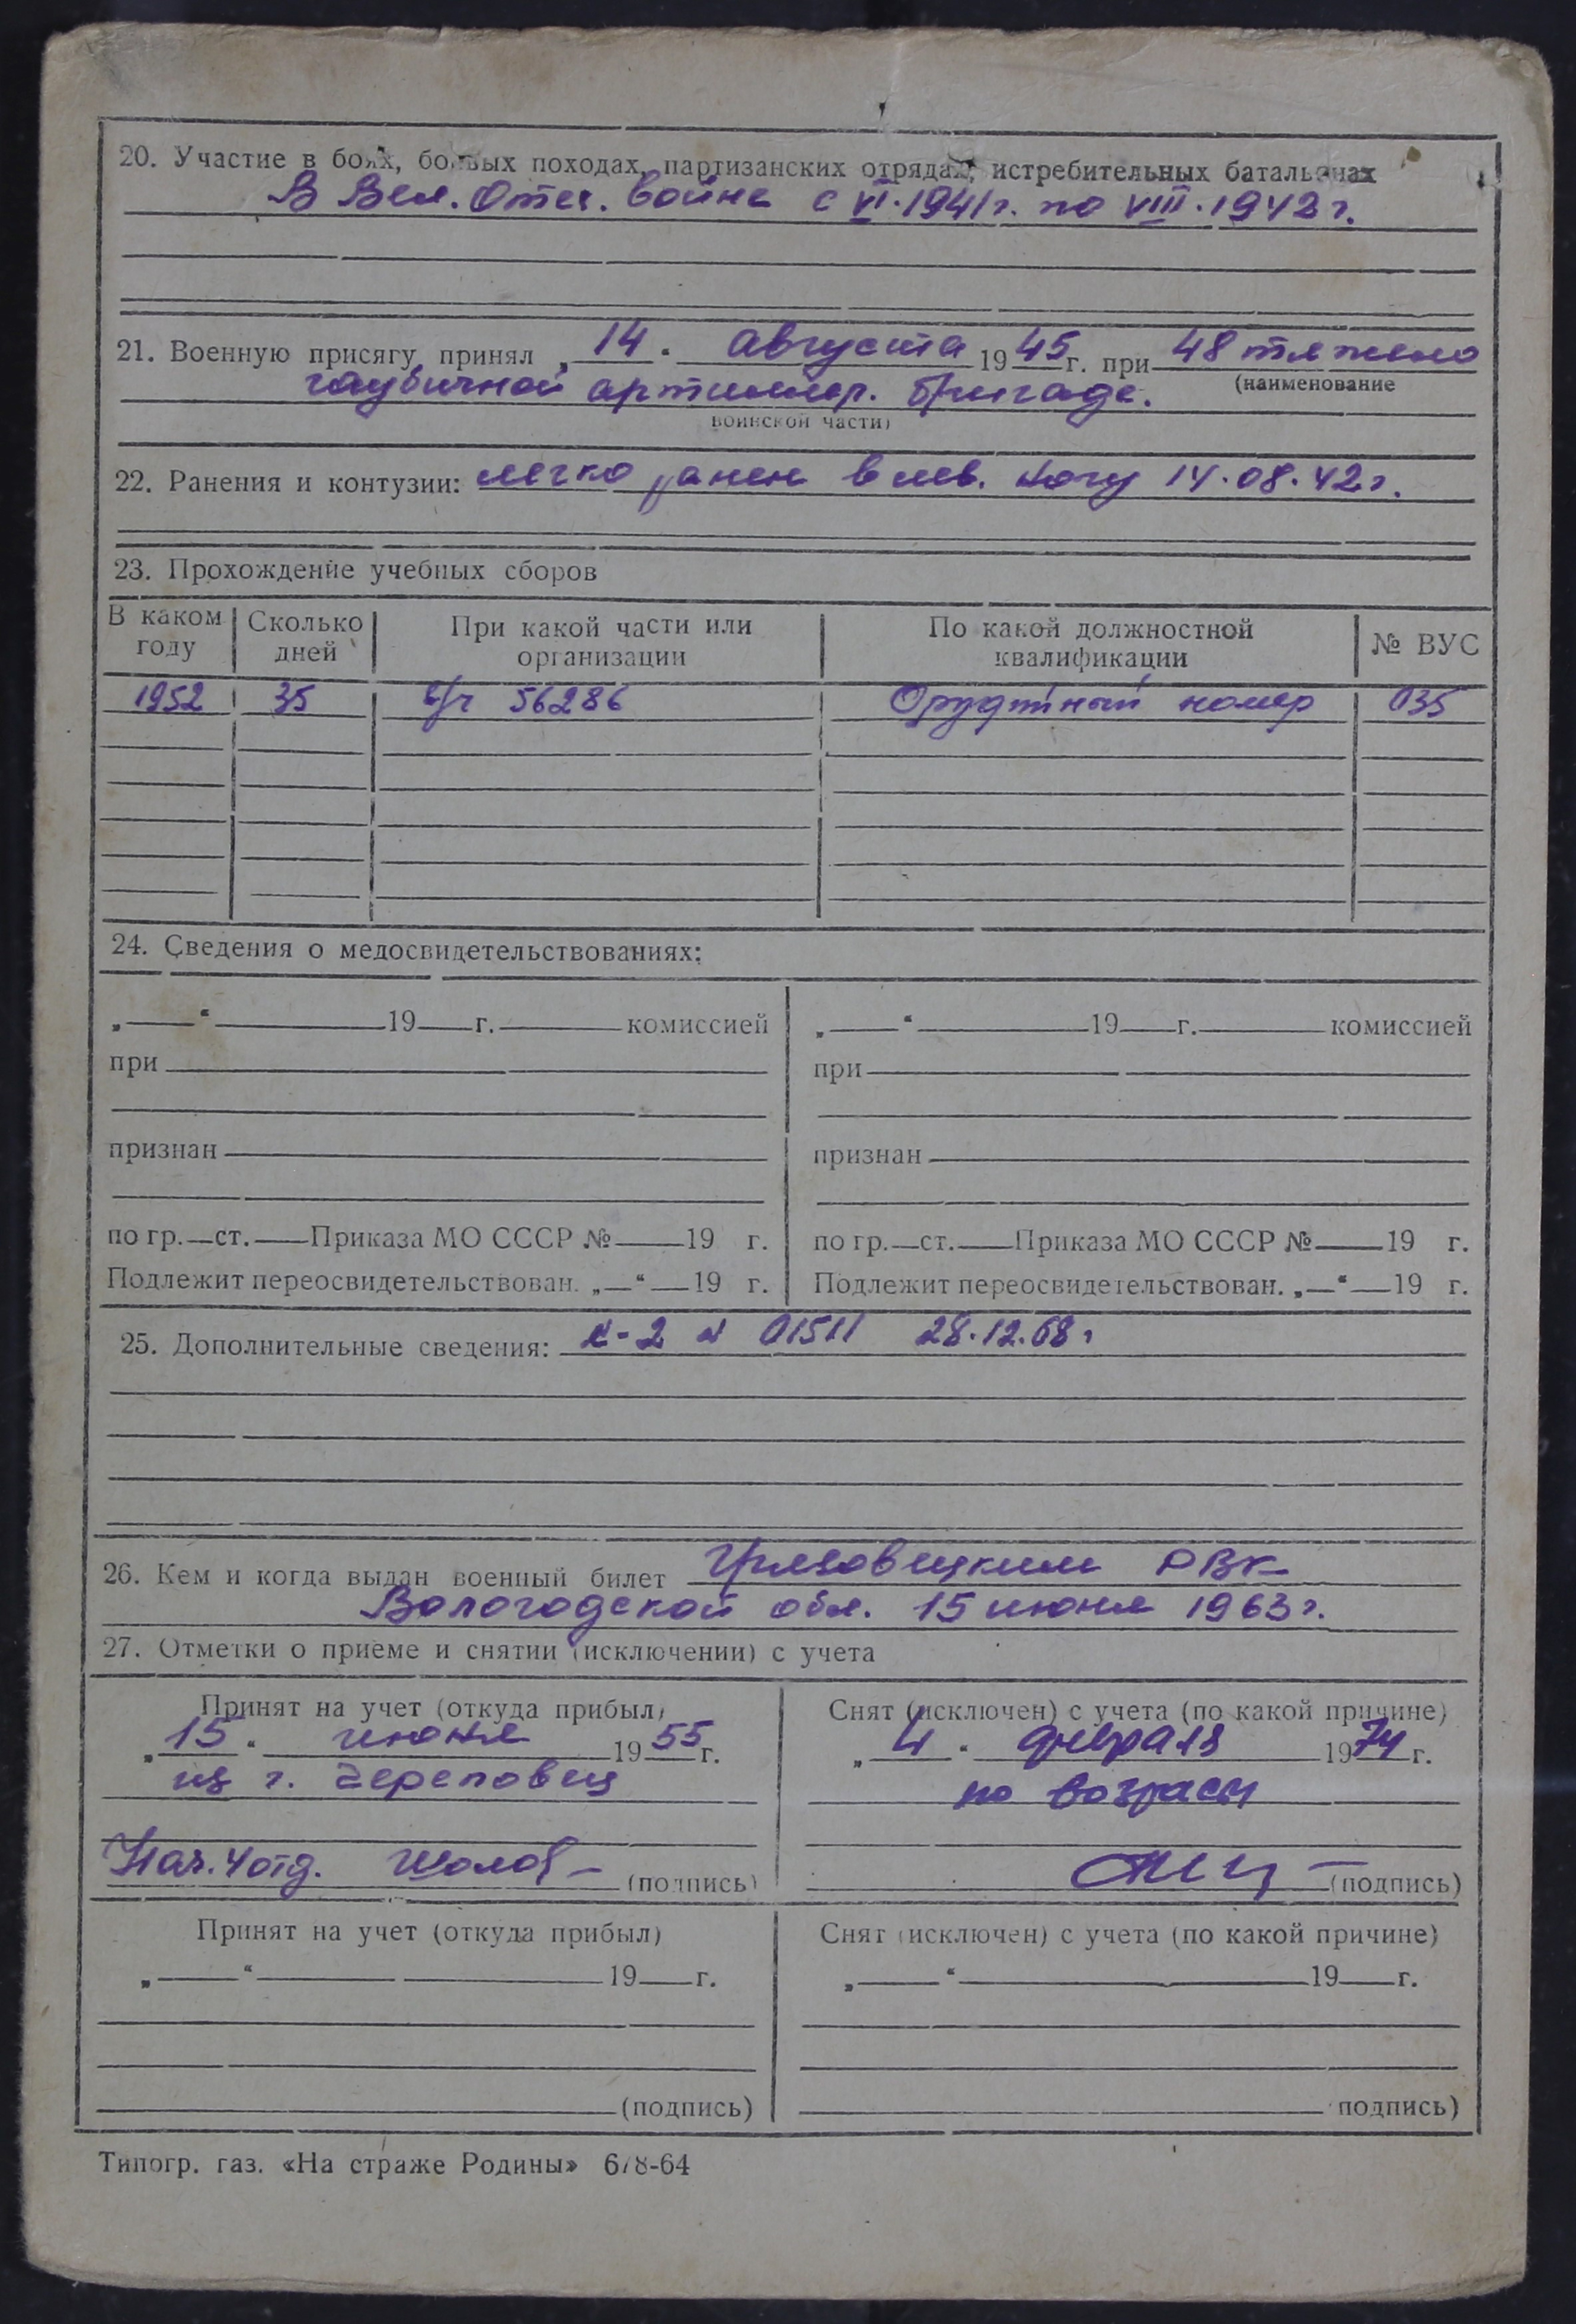 20. Участие в боях, боевых походах, партизанских отрядах, истребительных батальонах
В Вел. Отеч. войне с VI.1941г. по VIII.1942г.
21. Военную присягу принял „14" августа 1945г. при 48 тяжело
(наименование
гаубичной артиллер. бригаде.
воинской части)
22. Ранения и контузии: легко ранен в лев. ногу 14.08.42г.
23. Прохождение учебных сборов
В каком году | Сколько дней | При какой части или организации | По какой должностной квалификации | № ВУС
1952 | 35 | в/ч 56286 | Орудийный номер | 035
24. Сведения о медосвидетельствованиях:
„ “ 19 г. комиссией | „ “ 19 г. комиссией
при | при
признан | признан
по гр. ст. Приказа МО СССР № 19 г. | по гр. ст. Приказа МО СССР № 19 г.
Подлежит переосвидетельствован. „ “ 19 г. | Подлежит переосвидетельствован. „ “ 19 г.
25. Дополнительные сведения: 01511 28.12.68г
26. Кем и когда выдан военный билет Грязовецким РВК
Вологодской обл. 15 июня 1963г.
27. Отметки о приеме и снятии (исключении) с учета
Принят на учет (откуда прибыл) | Снят (исключен) с учета (по какой причине)
„15" июня 1955г. | „4" февраля 1974г.
из г. Череповец | по возрасту
Нач. 4 отд. (подпись) | (подпись)
Принят на учет (откуда прибыл) | Снят (исключен) с учета (по какой причине)
„ “ 19 г. | „ “ 19 г.
(подпись) | подпись)
Типогр. газ. «На страже Родины» 678-64